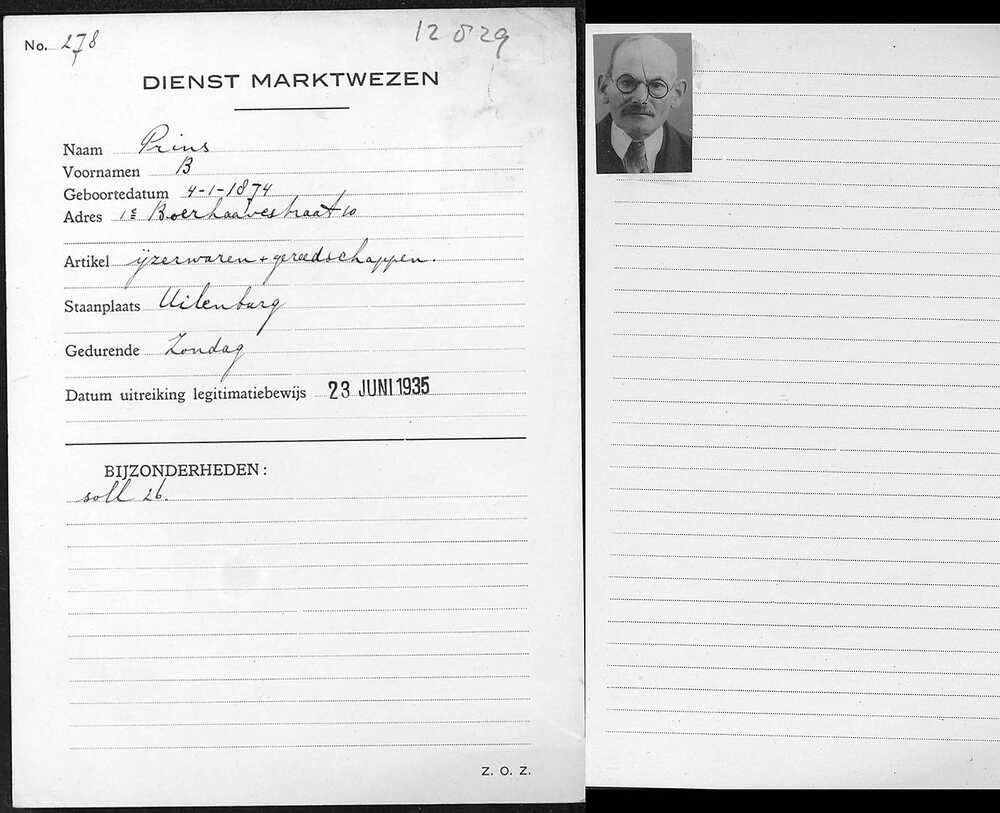 No. 278
12 8 29
DIENST MARKTWEZEN
Naam Prins
Voornamen B
Geboortedatum 4-1-1874
Adres 1e Boerhaavestraat 10
Artikel ijzerwaren + gereedschappen.
Staanplaats Uilenburg
Gedurende Zondag
Datum uitreiking legitimatiebewijs 23 JUNI 1935
BIJZONDERHEDEN:
soll 26.
Z. O. Z.